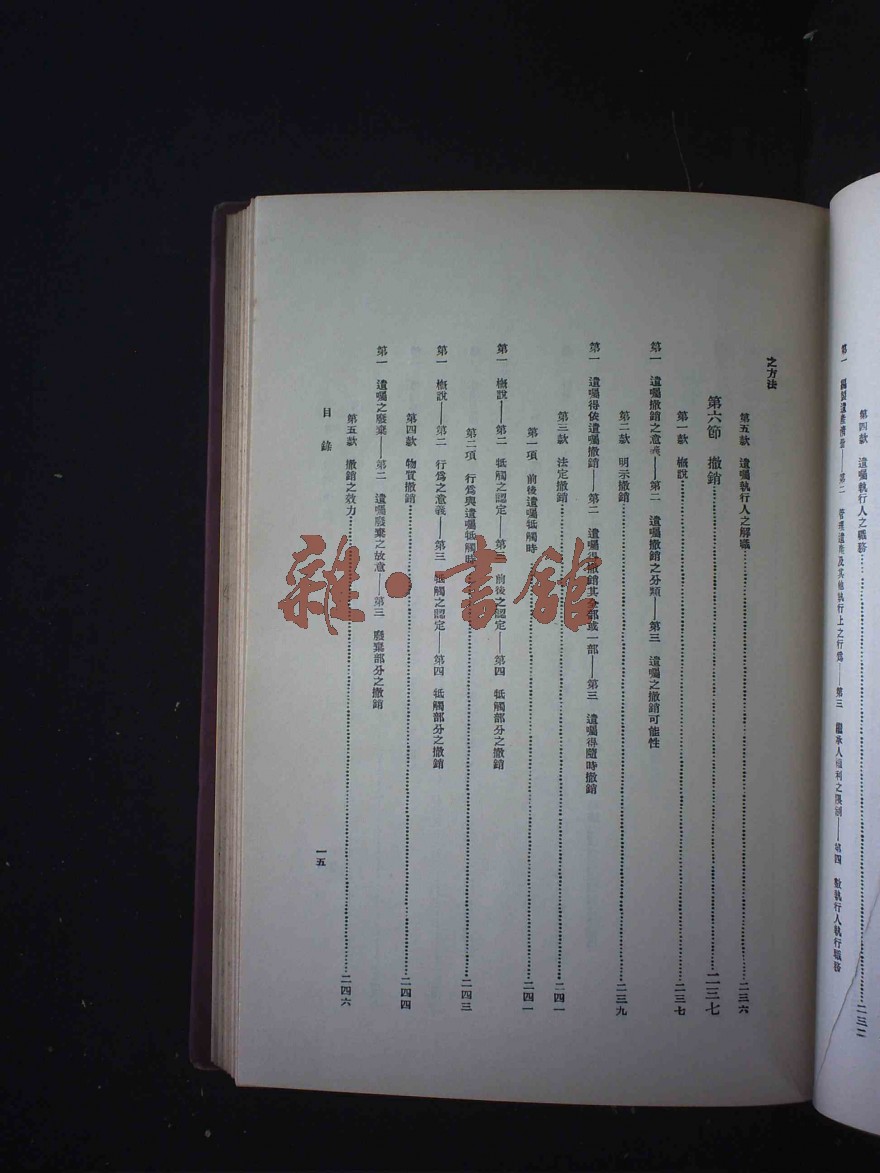 第四款　遺囑執行人之職務……二三二
第一　編製遺產清册——第二　管理遺產及其他執行上之行爲——第三　繼承人權利之限制——第四　數執行人執行職務
之方法
第五款　遺囑執行人之解職……二三六
第六節　撤銷……二三七
第一款　槪說……二三七
第一　遺囑撤銷之意義——第二　遺囑撤銷之分類——第三　遺囑之撤銷可能性
第二款　明示撤銷……二三九
第一　遺囑得依遺囑撤銷——第二　遺囑得撤銷其全部或一部——第三　遺囑得隨時撤銷
第三款　法定撤銷……二四一
第一項　前後遺囑牴觸時……二四一
第一　槪說——第二　牴觸之認定——第三　前後之認定——第四　牴觸部分之撤銷
第二項　行爲與遺囑牴觸時……二四三
第一　槪說——第二　行爲之意義——第三　牴觸之認定——第四　牴觸部分之撤銷
第四款　物質撤銷……二四四
第一　遺囑之廢棄——第二　遺囑廢棄之故意——第三　廢棄部分之撤銷
第五款　撤銷之效力……二四六
目錄
一五
雜·書館